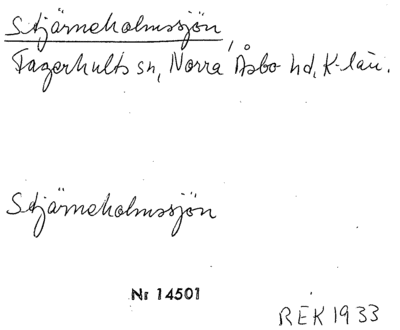 Stjärneholmssjön,
Fagerhults sn, Norra Åsbo hd, K-län.
Stjärneholmssjön
Nr 14501
REK 1933